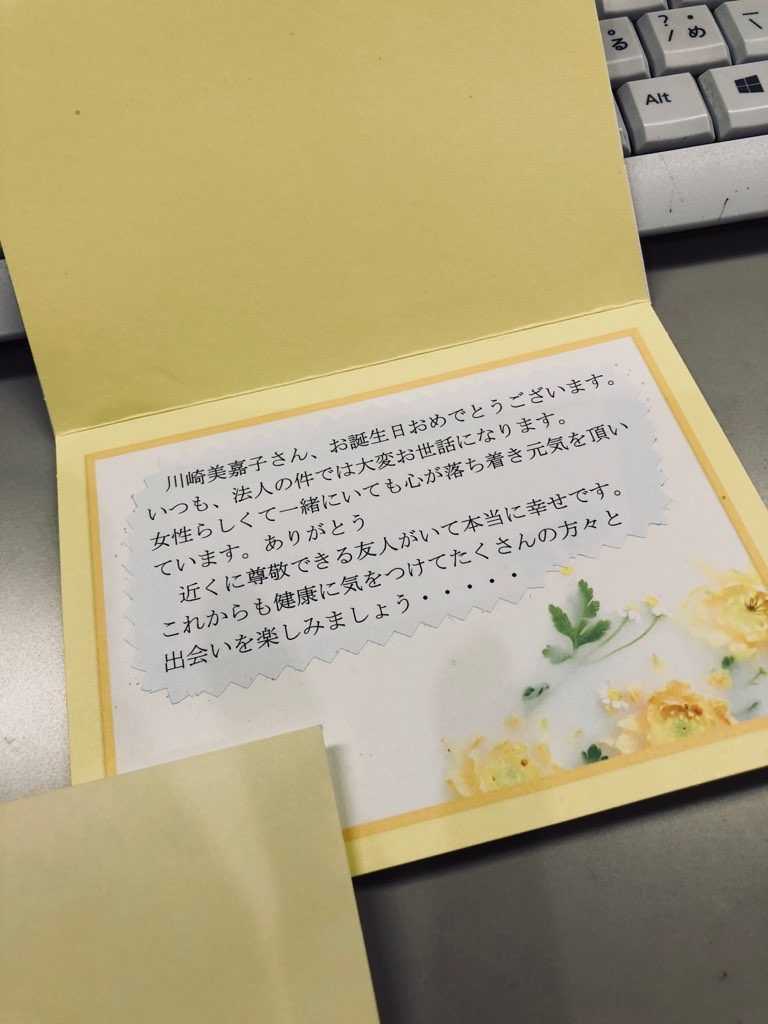 る
?・
/め
Alt
川崎美嘉子さん、お誕生日おめでとうございます。
いつも、法人の件では大変お世話になります。
女性らしくて一緒にいても心が落ち着き元気を頂い
ています。ありがとう
近くに尊敬できる友人がいて本当に幸せです。
これからも健康に気をつけてたくさんの方々と
出会いを楽しみましょう・・・・・